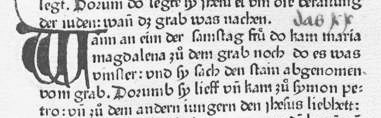 legt. Dozum do legte sy jhesu
der iuden: wañ dz grab was nachen. Jas XX
Wann an ein der samstag frů do kam maria
magdalena zů dem grab noch do es was
vinster: vnd sy sach den stain abgenomen
vom grab. Dozumb sy lieff vñ kam zů symon pe-
tro: vñ zů dem andern iungern den jhesus liebhett: